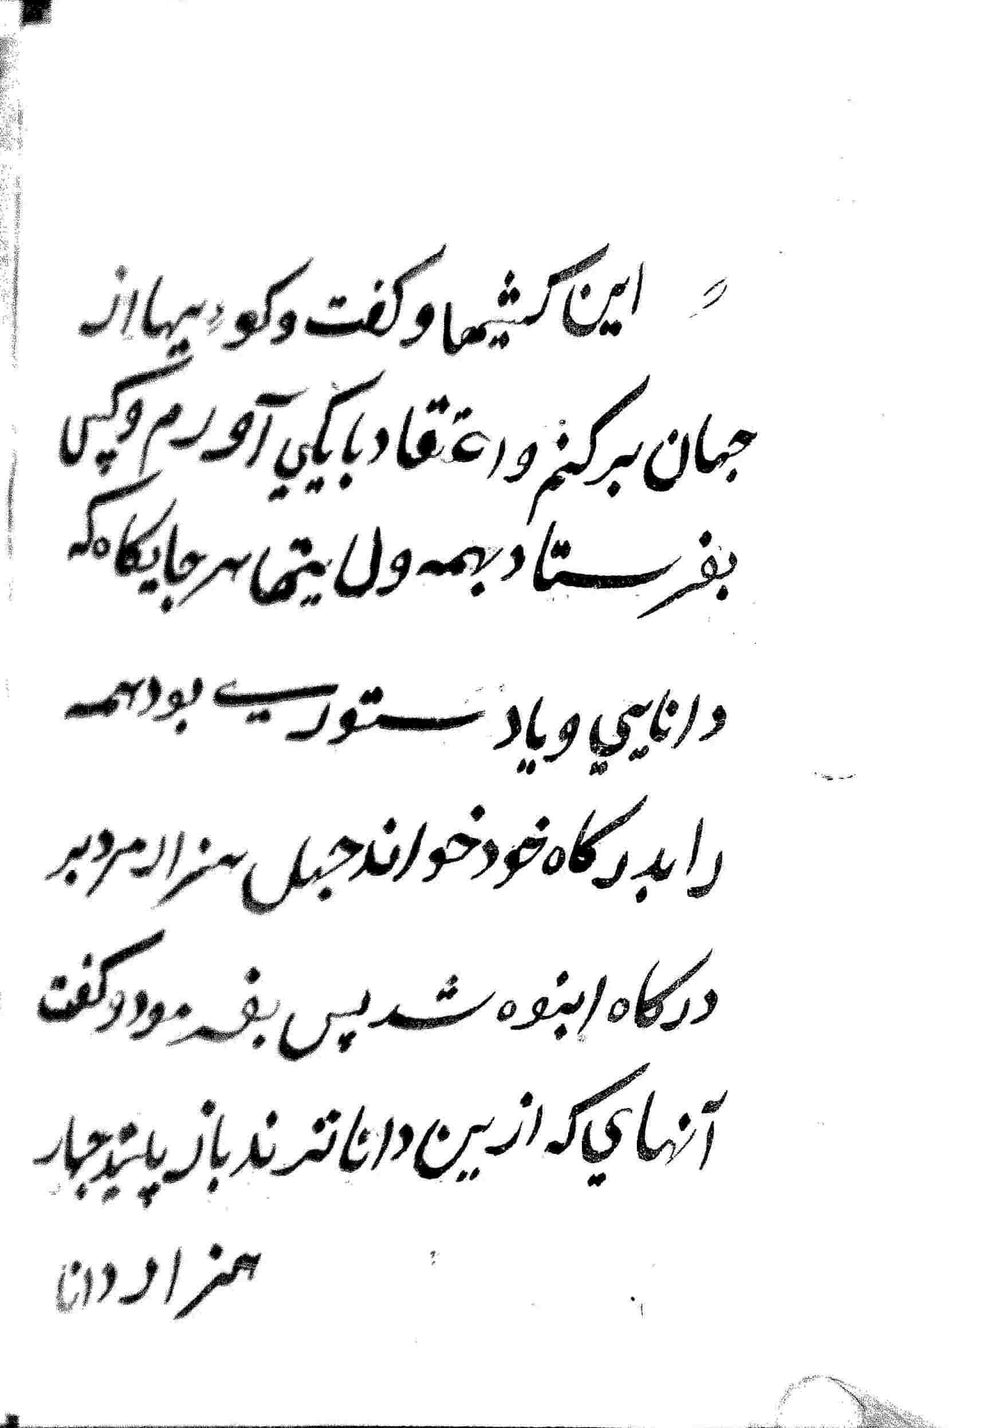 این کیشها و کفت و کودیها از
جهان بر کنم و اعتقاد بایکي آورم و کس
بفرستاد بهمه ولایتها هر جایکاه که
دانایي و یا دستوري بود همه
را بدرکاه خود خواند چهل هزار مرد بر
درکاه انبوه شد پس بفرمود و کفت
آنهایي که ازین داناترند باز پاییند چهار
هزار دانا